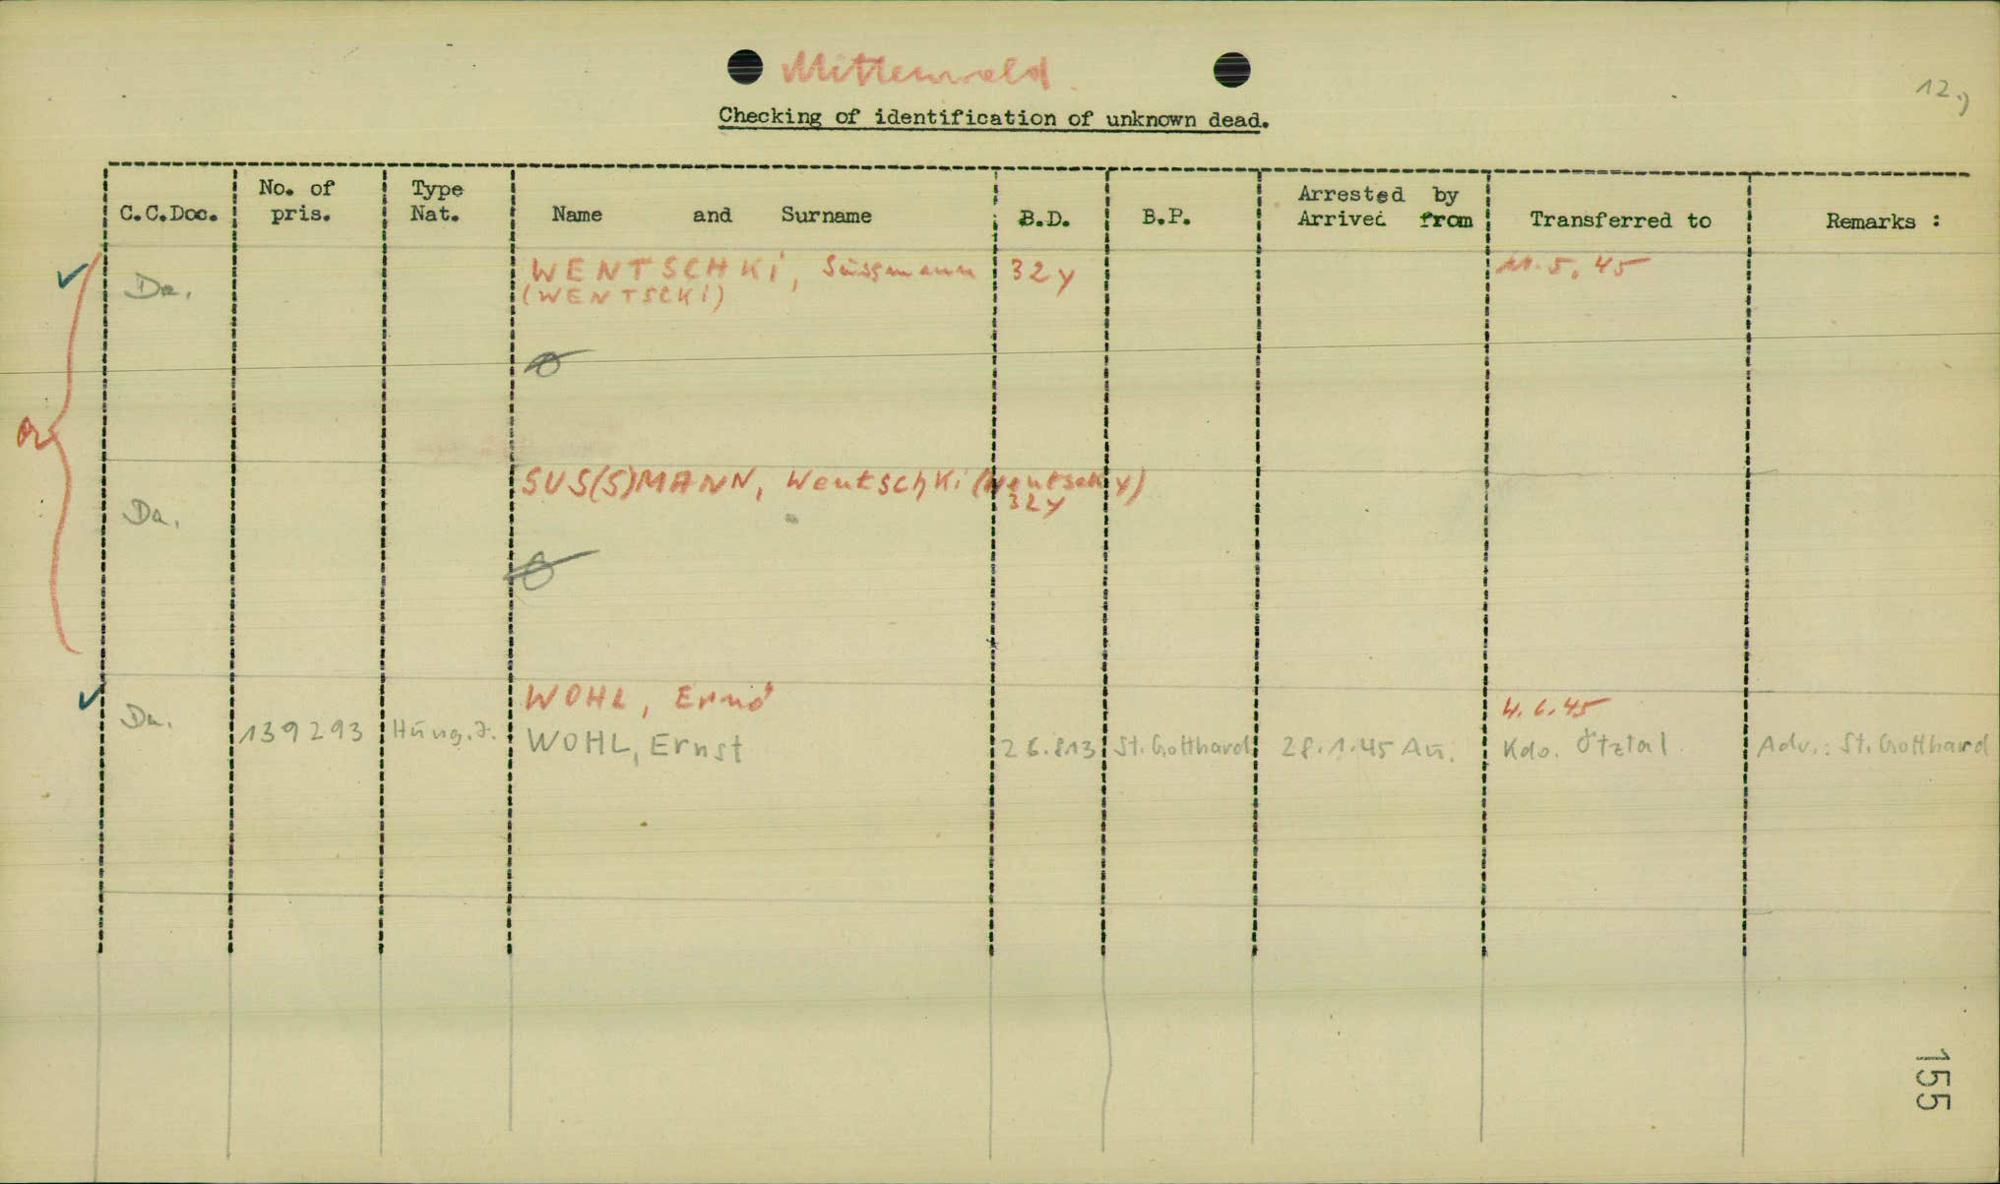 Mittenwald
12.)
Checking of identification of unknown dead.
C.C.Doc. No. of pris. Type Nat. Name and Surname B.D. B.P. Arrested by Arrived from Transferred to Remarks :
Da. WENTSCHKI, Süssmann 32y 11.5.45
(WENTSCKI)
or
Da. SUS(S)MANN, Wentschki (Wentscky)
32y
WOHL, Ernö 4.6.45
Da. 139293 Hung.J. WOHL, Ernst 26.8.13 St. Gotthard 28.1.45 Au. Kdo. Ötztal Adv.: St. Gotthard
155